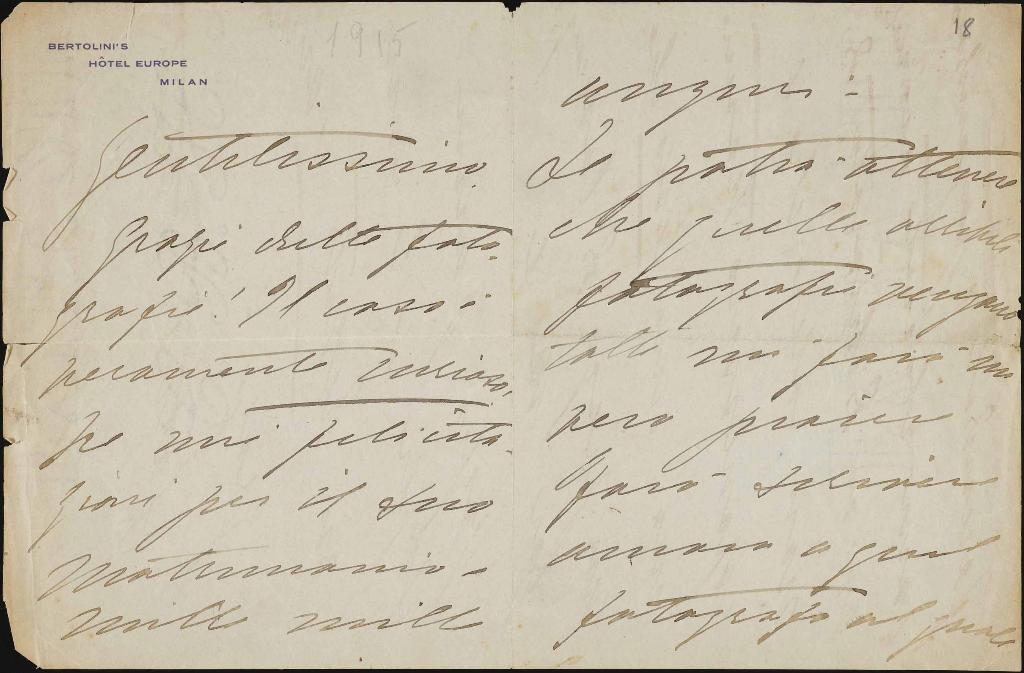 18
1915
BERTOLINI'S
HÔTEL EUROPE
MILAN
Gentilissimo
Grazie delle foto-
grafie! Il caso è
veramente curioso,
le mie felicita-
zioni per il suo
matrimonio -
mille mille
auguri -
Se potrà ottenere
che quelle
fotografie vengano
tolte mi farà un
vero piacere
Farò scrivere
ancora a quel
fotografo al quale